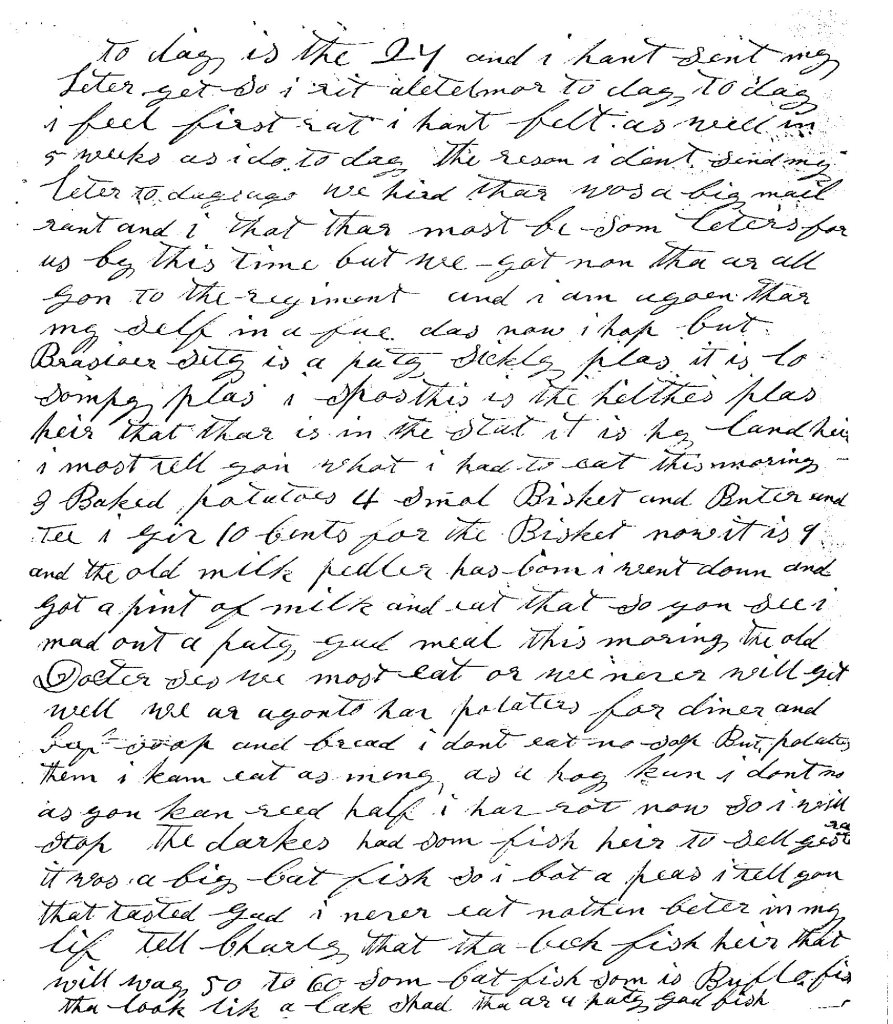 to day is the 24 and i hant sent my
leter yet so i rit aletelmor to day to day
i feel first rat i hant felt as well in
5 weeks as i do to day the reson i dent send my
leter to day ago we hird thar was a big mail
rant and i that thar most be som leters for
us by this time but we got non tha ar all
gon to the regiment and i am agoen thar
my self in a fue das now i hop but
Brasiaer sity is a paty sickly plas it is lo
sompy plas i spos this is the helthes plas
heir that thar is in the stat it is hy land heir
i most tell you what i had to eat this moring
9 Baked potatoes 4 smol Bisket and Buter and
Tee i giv 10 cents for the Bisket now it is 9
and the old milk pedler has com i went doun and
got a pint of milk and eat that so you see i
mad out a paty gud meal this moring the old
Docter ses we most eat or we never will get
well we ar agont to har potaters for diner and
soop and bread i dont eat no soop But potates
them i kam eat as meny as a hog kan i dont no
as you kan reed half i har rot now so i will
stop the darkes had som fish heir to sell yestrda
it was a big cat fish so i bot a peas i tell you
that tasted gud i never eat nothen beter in my
lif tell Charly that tha cech fish heir that
will way 50 to 60 som cat fish som is Buflo fis
tha look lik a lak shad tha ar a paty gud fish